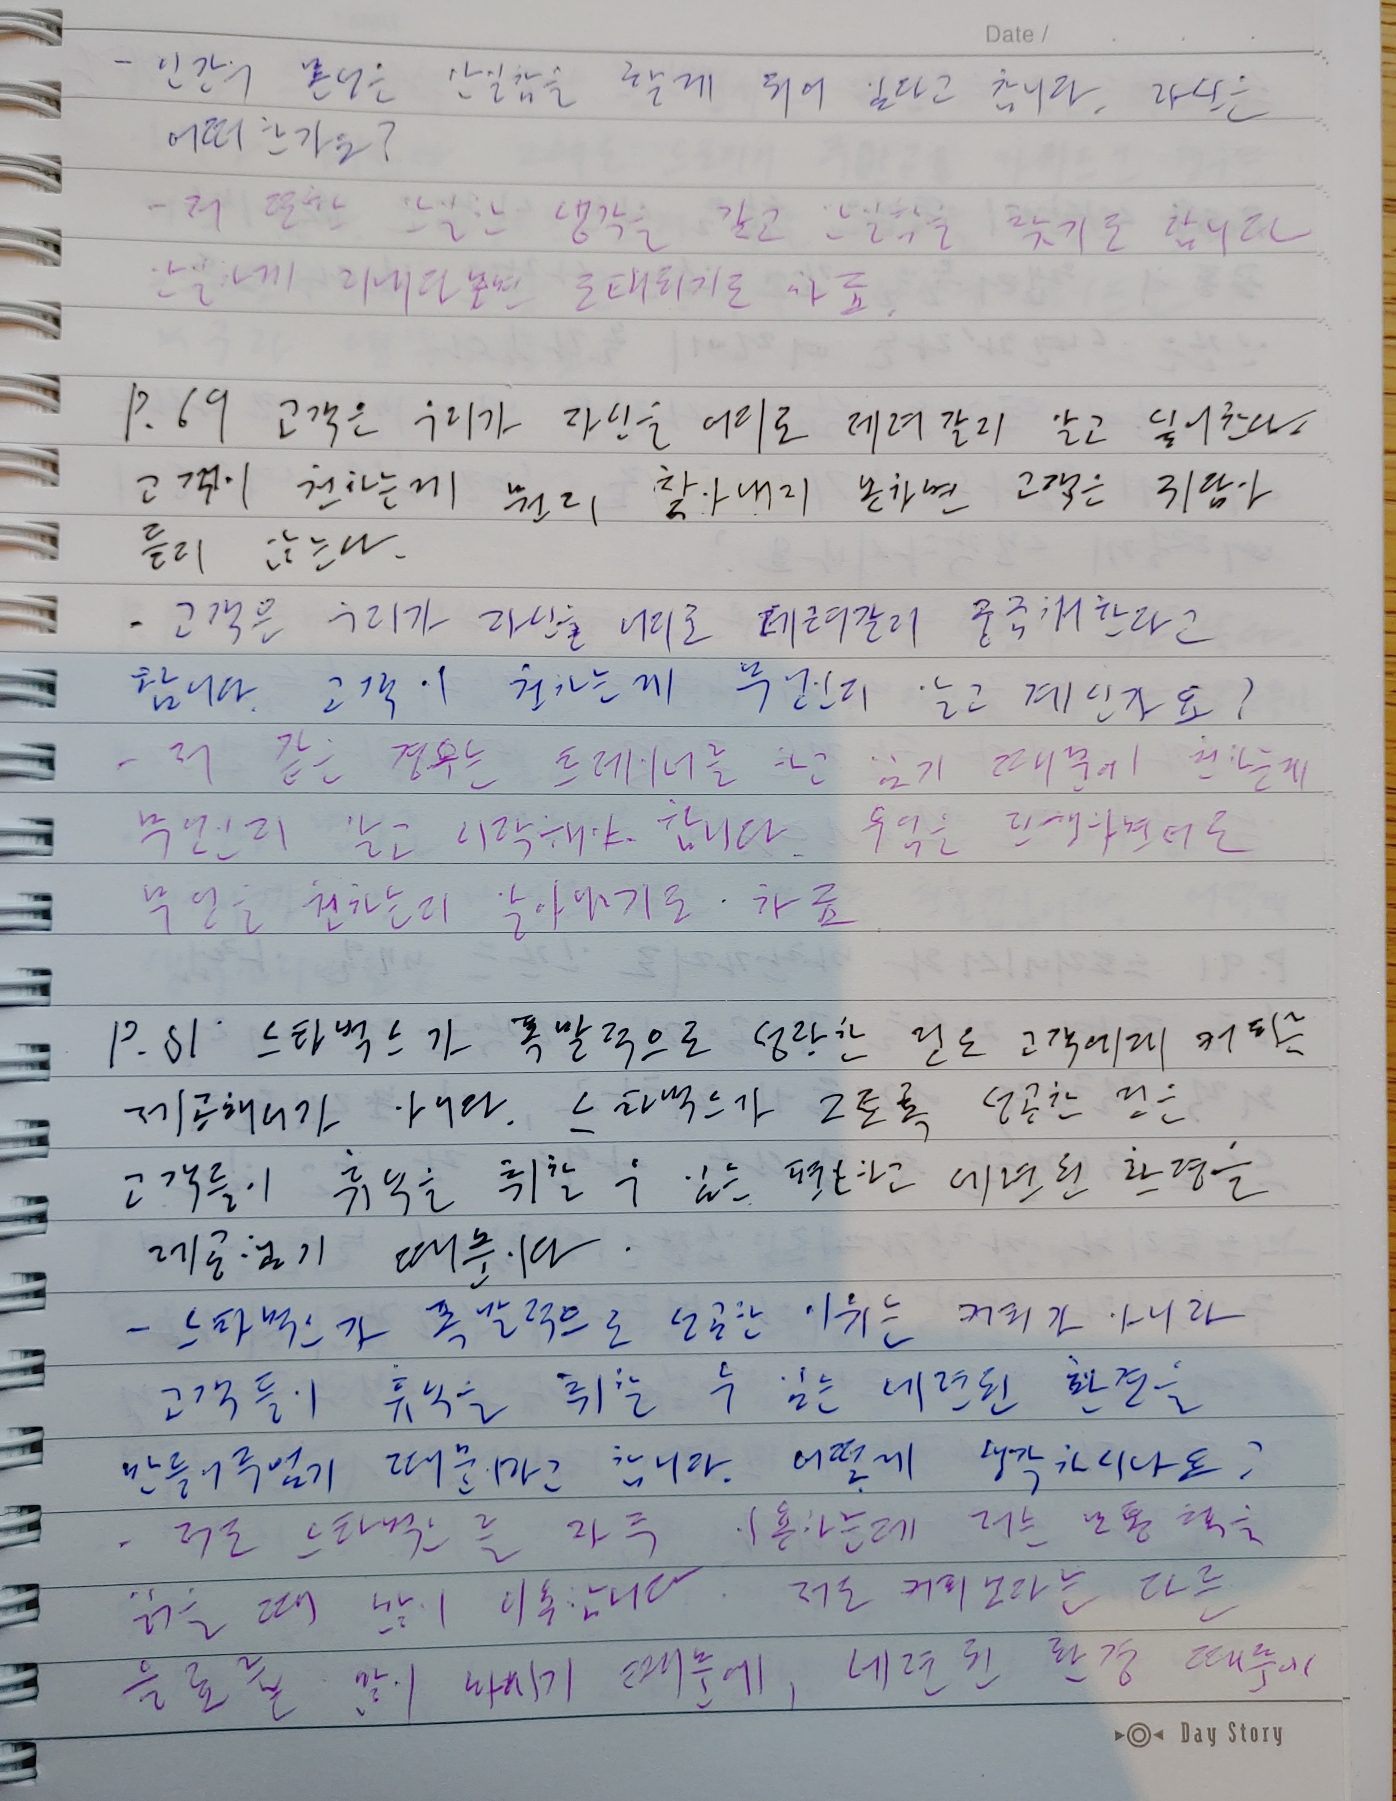 Date /
- 인간의 본성은 안일함을 찾게 되어 있다고 합니다. 자신은
어떠한가요?
- 저 또한 안일한 생각을 갖고 안일함을 찾기도 합니다
안일하게 지내다보면 도태되기도 하죠.
P. 69 고객은 우리가 자신을 어디로 데려갈지 알고 싶어한다.
고객이 원하는게 뭔지, 찾아내지 못하면 고객은 귀담아
듣지 않는다.
- 고객은 우리가 자신을 어디로 데려갈지 궁금해한다고
합니다. 고객이 원하는게 무엇인지 알고 계신가요?
- 저 같은 경우는 트레이너를 하고 있기 때문에 원하는게
무엇인지 알고 시작해야 합니다. 수업을 진행하면서도
무엇을 원하는지 알아보기도 하죠
P. 81 스타벅스가 폭발적으로 성장한 것은 고객에게 커피를
제공해서가 아니다. 스타벅스가 그토록 성공한 것은
고객들이 휴식을 취할 수 있는 편하고 세련된 환경을
제공했기 때문이다.
- 스타벅스가 폭발적으로 성공한 이유는 커피가 아니라
고객들이 휴식을 취할 수 있는 세련된 환경을
만들어주었기 때문이라고 합니다. 어떻게 생각하시나요?
- 저도 스타벅스를 자주 이용하는데 저는 보통 책을
읽을 때 많이 이용합니다. 저도 커피보다는 다른
음료를 많이 마시기 때문에, 세련된 환경 때문에
Day Story